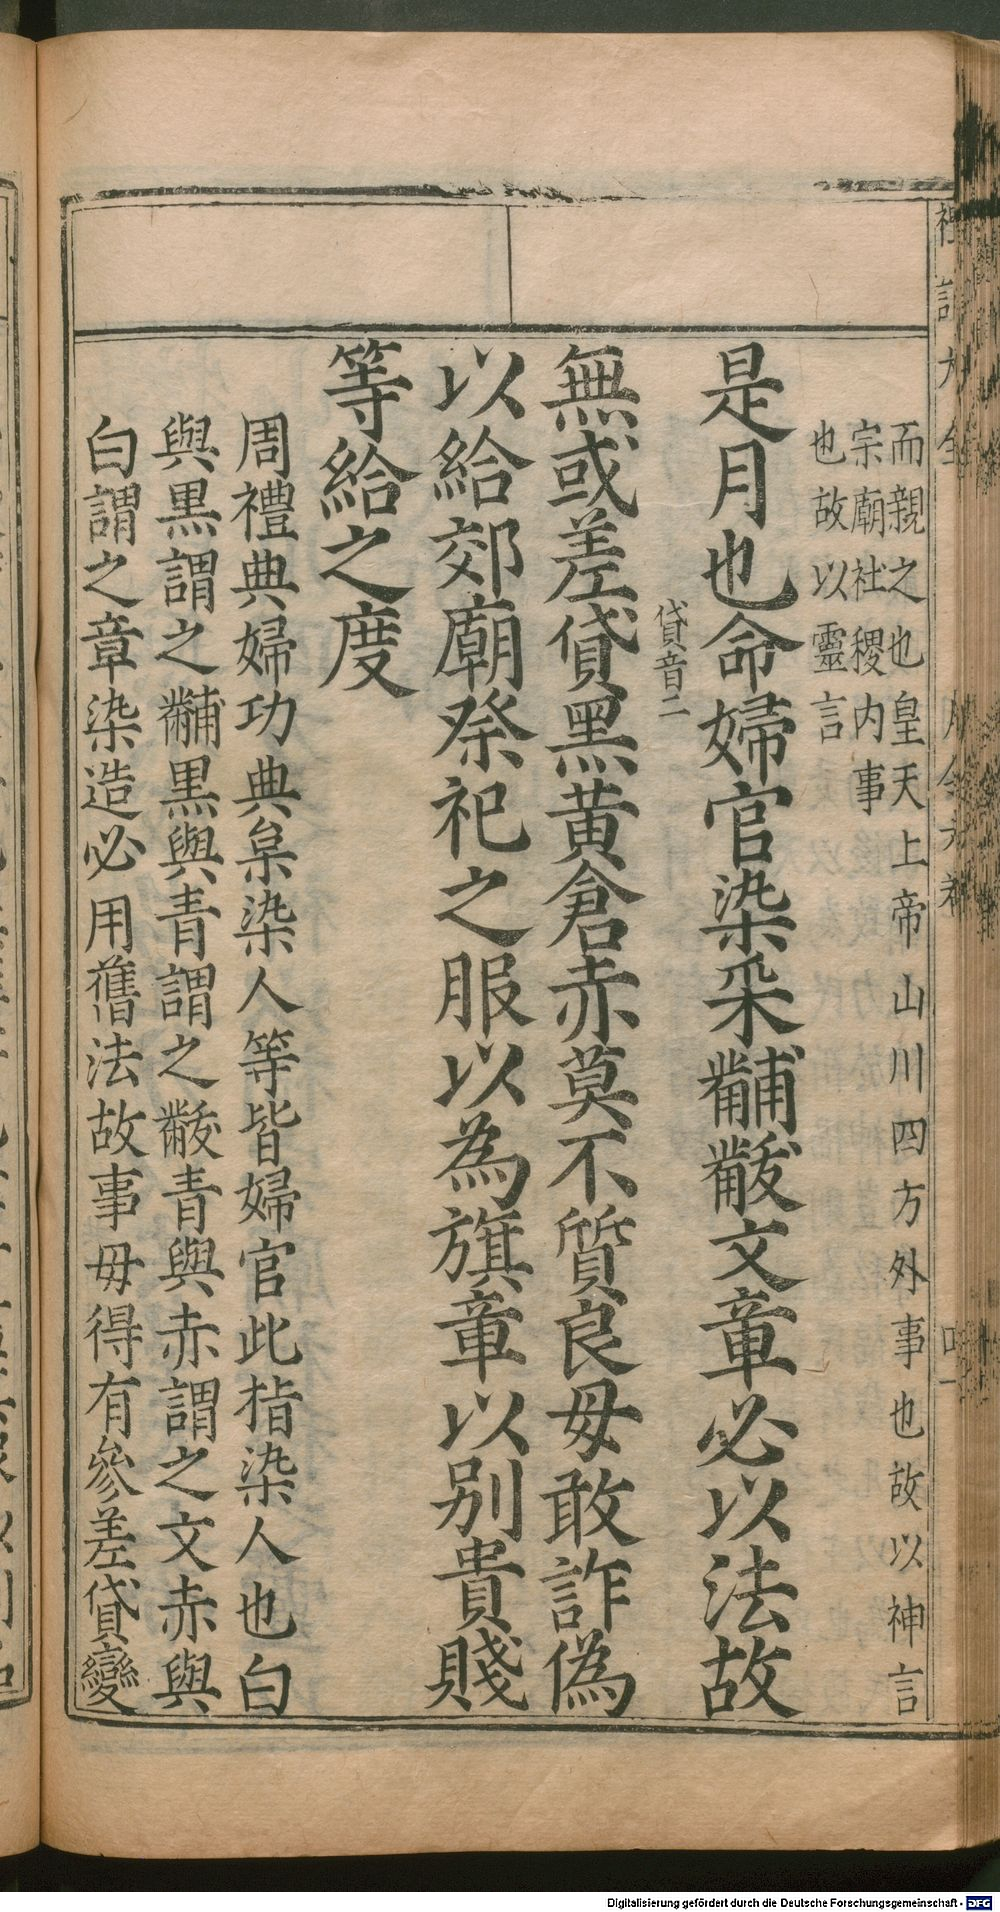 而親之也皇天上帝山川四方外事也故以神言
宗廟社稷内事
也故以靈言
是月也命婦官染采黼黻文章必以法故
貸音二
無或差貸黑黄倉赤莫不質良毋敢詐偽
以給郊廟祭祀之服以為旗章以别貴賤
等給之度
周禮典婦功典枲染人等皆婦官此指染人也白
與黒謂之黼黒與青謂之黻青與赤謂之文赤與
白謂之章染造必用舊法故事毋得有參差貸變
Digitalisierung gefördert durch die Deutsche Forschungsgemeinschaft - DFG